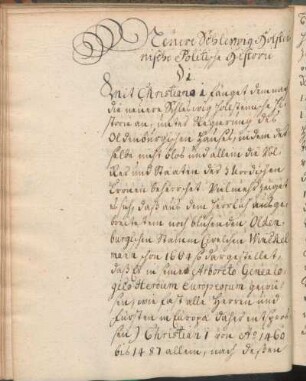 Neuere Schleswig Holstei-
nische Politische Historie
§ 1
Mit Christiano 1 fänget demnach
die neuere Schleswig Hollsteinische Hi-
storie an, unter Regierung des
Oldenburgischen Hauses, indem der-
selbe nicht blos und allein die Völ-
ker und Staaten der 3 Nordischen
Cronen beherrschet vielmehr zeiget
sich, daß aus dem herrlich ausge-
breiteten noch blühenden Olden-
burgischen Stamm (welchen Winckel-
mann von 1664 dargestellet,
daß in einem Arboreto Genealo-
gico Heroum Europæorum gezei-
get, wie fast alle Herren und
Fürsten in Europa daher entspros-
sen) Christian 1 von Aō 1460
bis 1481 allein, nach dessen